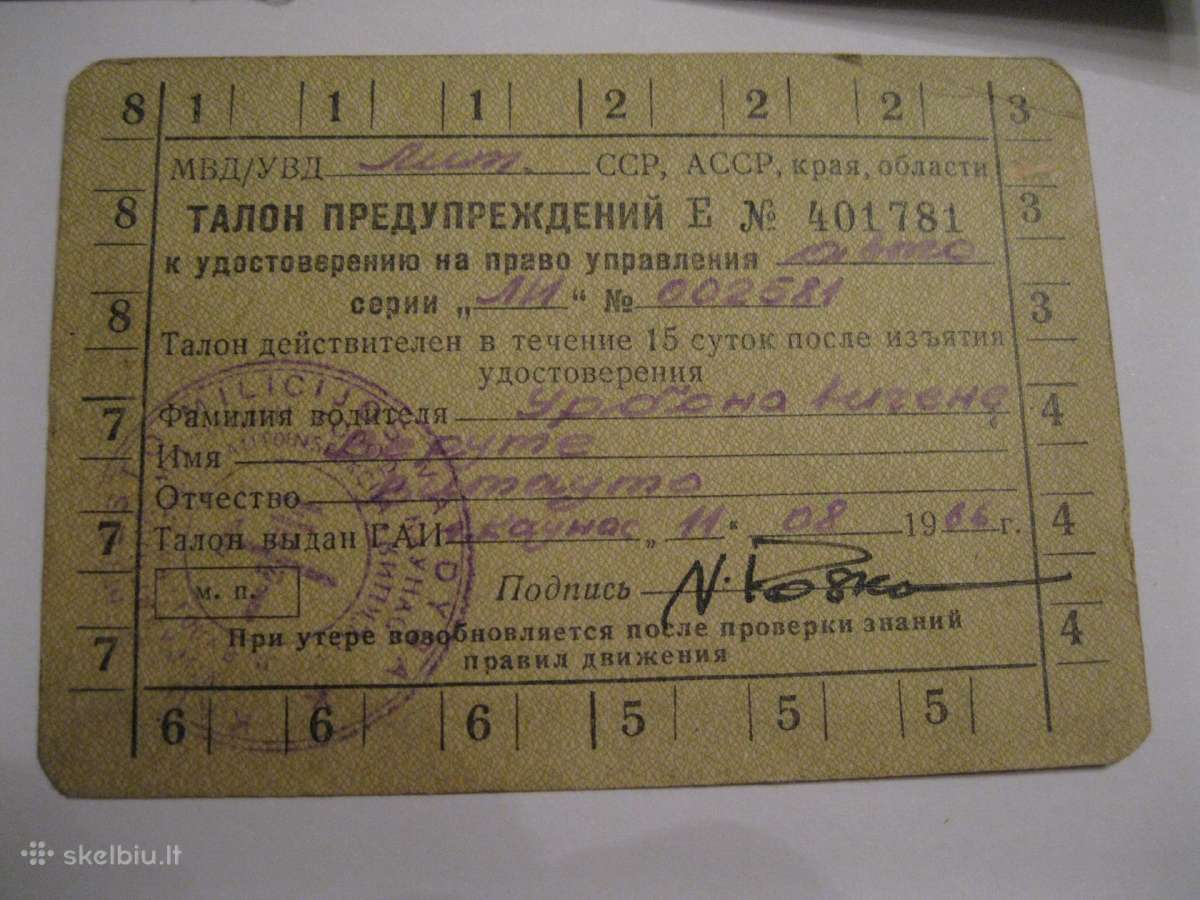 8 1 1 1 2 2 2 3
МВД/УВД Лит. ССР, АССР, края, области
8 ТАЛОН ПРЕДУПРЕЖДЕНИЙ Е № 401781 3
к удостоверению на право управления авто
8 серии „ЛИ“ № 002581 3
Талон действителен в течение 15 суток после изъятия
удостоверения
7 Фамилия водителя 4
Имя Вируте
Отчество Витауто
7 Талон выдан ГАИ г.Каунас „11“ 08 1966 г. 4
м. п. Подпись
При утере возобновляется после проверки знаний
7 правил движения 4
6 6 6 5 5 5
MILICIJOS
КАУНАС
skelbiu.lt